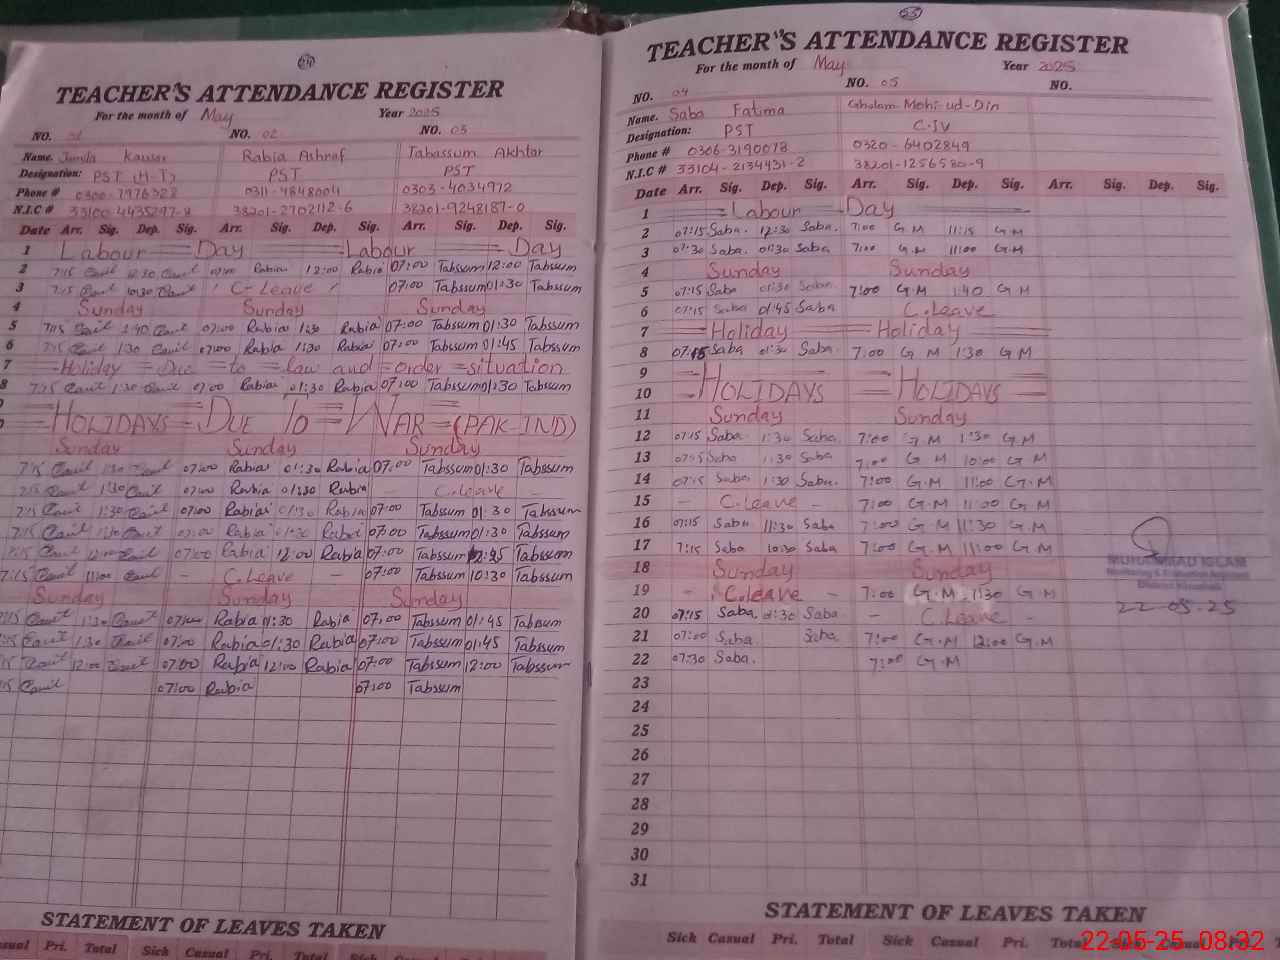 TEACHER'S ATTENDANCE REGISTER
For the month of May Year 2025
NO. 01 NO. 02 NO. 03
Name. Kausar Rabia Ashraf Tabassum Akhtar
Designation: PST (H-T) PST PST
Phone # 0300-7976328 0311-4848004 0303-4034972
N.I.C # 33100-4435297-8 38201-2702112-6 38201-9248187-0
Date Arr. Sig. Dep. Sig. Arr. Sig. Dep. Sig. Arr. Sig. Dep. Sig.
1 Labour Day Labour Day
2 7:15 12:30 Rabia 12:00 Rabia 07:00 Tabssum 12:00 Tabssum
3 7:15 10:30 C-Leave 07:00 Tabssum 01:30 Tabssum
4 Sunday Sunday Sunday
5 7:15 1:40 07:00 Rabia 1:30 Rabia 07:00 Tabssum 01:30 Tabssum
6 7:15 1:30 07:00 Rabia 1:30 Rabia 07:00 Tabssum 01:45 Tabssum
7 Holiday = Due = to = law and = order = situation
8 7:15 1:30 07:00 Rabia 01:30 Rabia 07:00 Tabssum 01:30 Tabssum
HOLIDAYS = DUE TO = WAR = (PAK-IND)
Sunday Sunday Sunday
7:15 1:30 07:00 Rabia 01:30 Rabia 07:00 Tabssum 01:30 Tabssum
7:15 1:30 07:00 Rabia 01:30 Rabia - C.Leave -
7:15 1:30 07:00 Rabia 01:30 Rabia 07:00 Tabssum 01:30 Tabssum
7:15 07:00 Rabia 01:30 Rabia 07:00 Tabssum 01:30 Tabssum
7:15 12:00 07:00 Rabia 12:00 Rabia 07:00 Tabssum Tabssum
7:15 11:00 - C.Leave - 07:00 Tabssum 10:30 Tabssum
Sunday Sunday Sunday
1:30 07:00 Rabia 01:30 Rabia 07:00 Tabssum 01:45 Tabssum
1:30 07:00 Rabia 01:30 Rabia 07:00 Tabssum 01:45 Tabssum
12:00 07:00 Rabia 12:00 Rabia 07:00 Tabssum 12:00 Tabssum
07:00 Rabia 07:00 Tabssum
STATEMENT OF LEAVES TAKEN
Casual Pri. Total Sick Casual Pri. Total Sick Casual
TEACHER'S ATTENDANCE REGISTER
For the month of May Year 2025
NO. 04 NO. 05 NO.
Name. Saba Fatima Gholam Mohi-ud-Din
Designation: PST C-IV
Phone # 0306-3190078 0320-6402849
N.I.C # 33104-2134431-2 38201-1256580-9
Date Arr. Sig. Dep. Sig. Arr. Sig. Dep. Sig. Arr. Sig. Dep. Sig.
1 Labour Day
2 07:15 Saba. 12:30 Saba. 7:00 G M 11:15 G M
3 07:30 Saba. 01:30 Saba. 7:00 G M 11:00 G M
4 Sunday Sunday
5 07:15 Saba 01:30 Saba. 7:00 G M 1:40 G M
6 07:15 Saba 01:45 Saba C.Leave
7 Holiday Holiday
8 07:15 Saba 01:30 Saba. 7:00 G M 1:30 G M
9
10 HOLIDAYS HOLIDAYS
11 Sunday Sunday
12 07:15 Saba. 1:30 Saba. 7:00 G.M 1:30 G M
13 07:15 Saba 1:30 Saba 7:00 G M 10:00 G M
14 07:15 Saba 1:30 Saba. 7:00 G M 11:00 G.M
15 - C.Leave - 7:00 G M 11:00 G M
16 07:15 Saba 11:30 Saba 7:00 G M 11:30 G M
17 7:15 Saba 10:30 Saba 7:00 G.M 11:00 G M
18 Sunday Sunday
19 - C.Leave - 7:00 G.M 1:30 G M
20 07:15 Saba 01:30 Saba - C.Leave -
21 07:00 Saba. Saba. 7:00 G.M 12:00 G M
22 07:30 Saba. 7:00 G.M
MUHAMMAD ISLAM
22-05-25
23
24
25
26
27
28
29
30
31
STATEMENT OF LEAVES TAKEN
Sick Casual Pri. Total Sick Casual Pri. Total Sick Casual Pri.
22-05-25 08:32